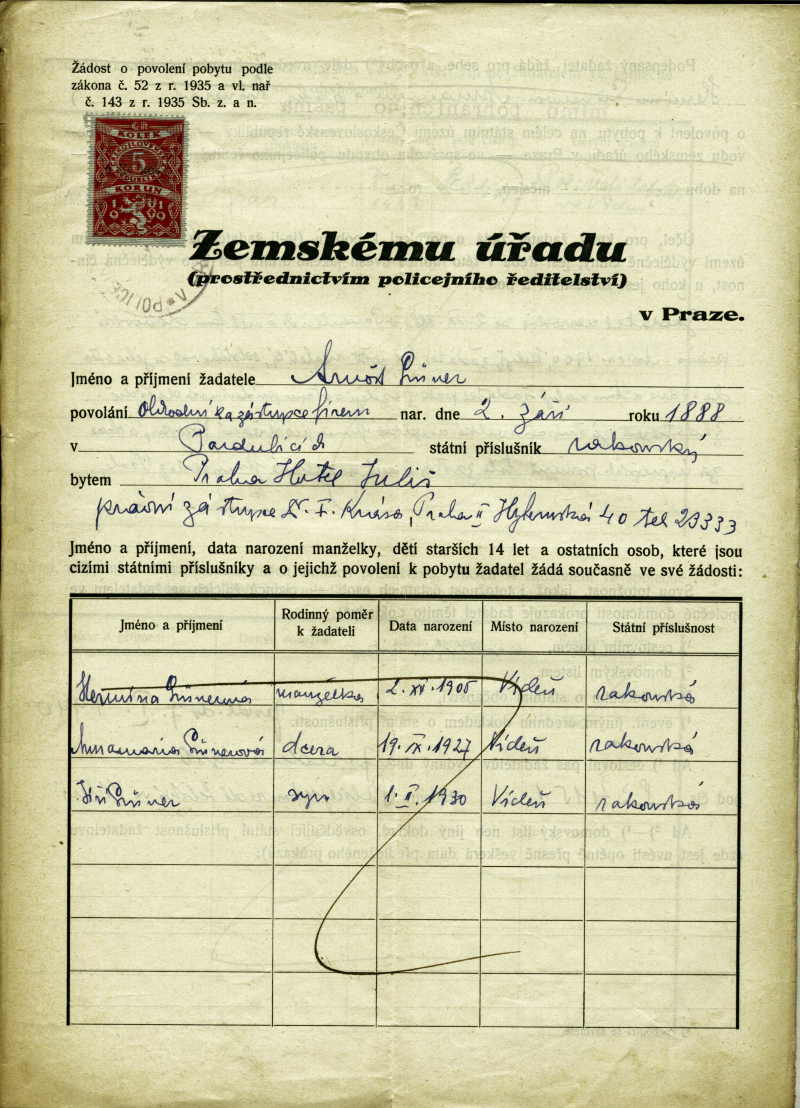 Žádost o povolení pobytu podle
zákona č. 52 z r. 1935 a vl. nař
č. 143 z r. 1935 Sb. z. a n.
KOLEK
5
KORUN
Zemskému úřadu
(prostřednictvím policejního ředitelství)
v Praze.
Jméno a příjmení žadatele Arnošt
povolání Obchodní zástupce firem nar. dne 2. Září roku 1888
v Pardubicích státní příslušník rakouský
bytem Praha Hotel Juliš
právní zástupce Dr. F. Praha II 40 tel 29333
Jméno a příjmení, data narození manželky, dětí starších 14 let a ostatních osob, které jsou
cizími státními příslušníky a o jejichž povolení k pobytu žadatel žádá současně ve své žádosti:
Jméno a příjmení Rodinný poměr k žadateli Data narození Místo narození Státní příslušnost
Hermina manželka 1905 Vídeň rakouská
Annamaria dcera 19. IX. 1927 Vídeň rakouská
Jiří syn 1. II. 1930 Vídeň rakouská